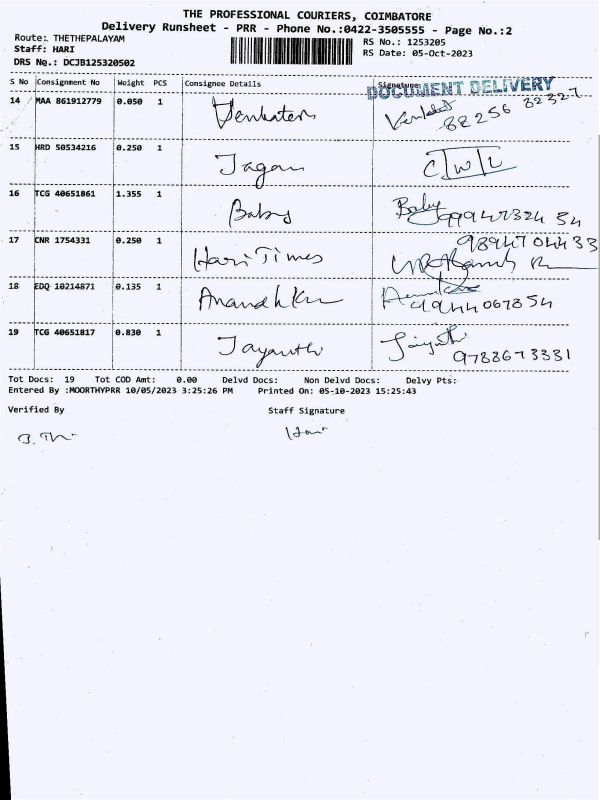 THE PROFESSIONAL COURIERS, COIMBATORE
Delivery Runsheet - PRR - Phone No.:0422-3505555 - Page No.:2
Route:. THETHEPALAYAM
RS No.: 1253205
Staff: HARI
RS Date: 05-Oct-2023
DRS No.: DCJB125320502
S No Consignment No Weight PCS Consignee Details Signature
DOCUMENT DELIVERY
14 MAA 861912779 0.050 1 Venkatesh Venkat
88256 82327
15 HRD 50534216 0.250 1 Jagan
16 TCG 40651861 1.355 1 Baby Baby
17 CNR 1754331 0.250 1 Hari Times
98947 04433
18 EDQ 10214871 0.135 1 Anandh
99444 067854
19 TCG 40651817 0.830 1 Jayanthi Jayanthi
9788673331
Tot Docs: 19 Tot COD Amt: 0.00 Delvd Docs: Non Delvd Docs: Delvy Pts:
Entered By :MOORTHYPRR 10/05/2023 3:25:26 PM Printed On: 05-10-2023 15:25:43
Verified By Staff Signature
Hari